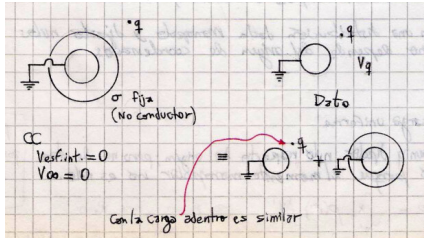 •q
σ fija
(No conductor)
•q
Vq
Dato
CC
Vesf.int. = 0
V∞ = 0
≡
•q
+
Con la carga adentro es similar